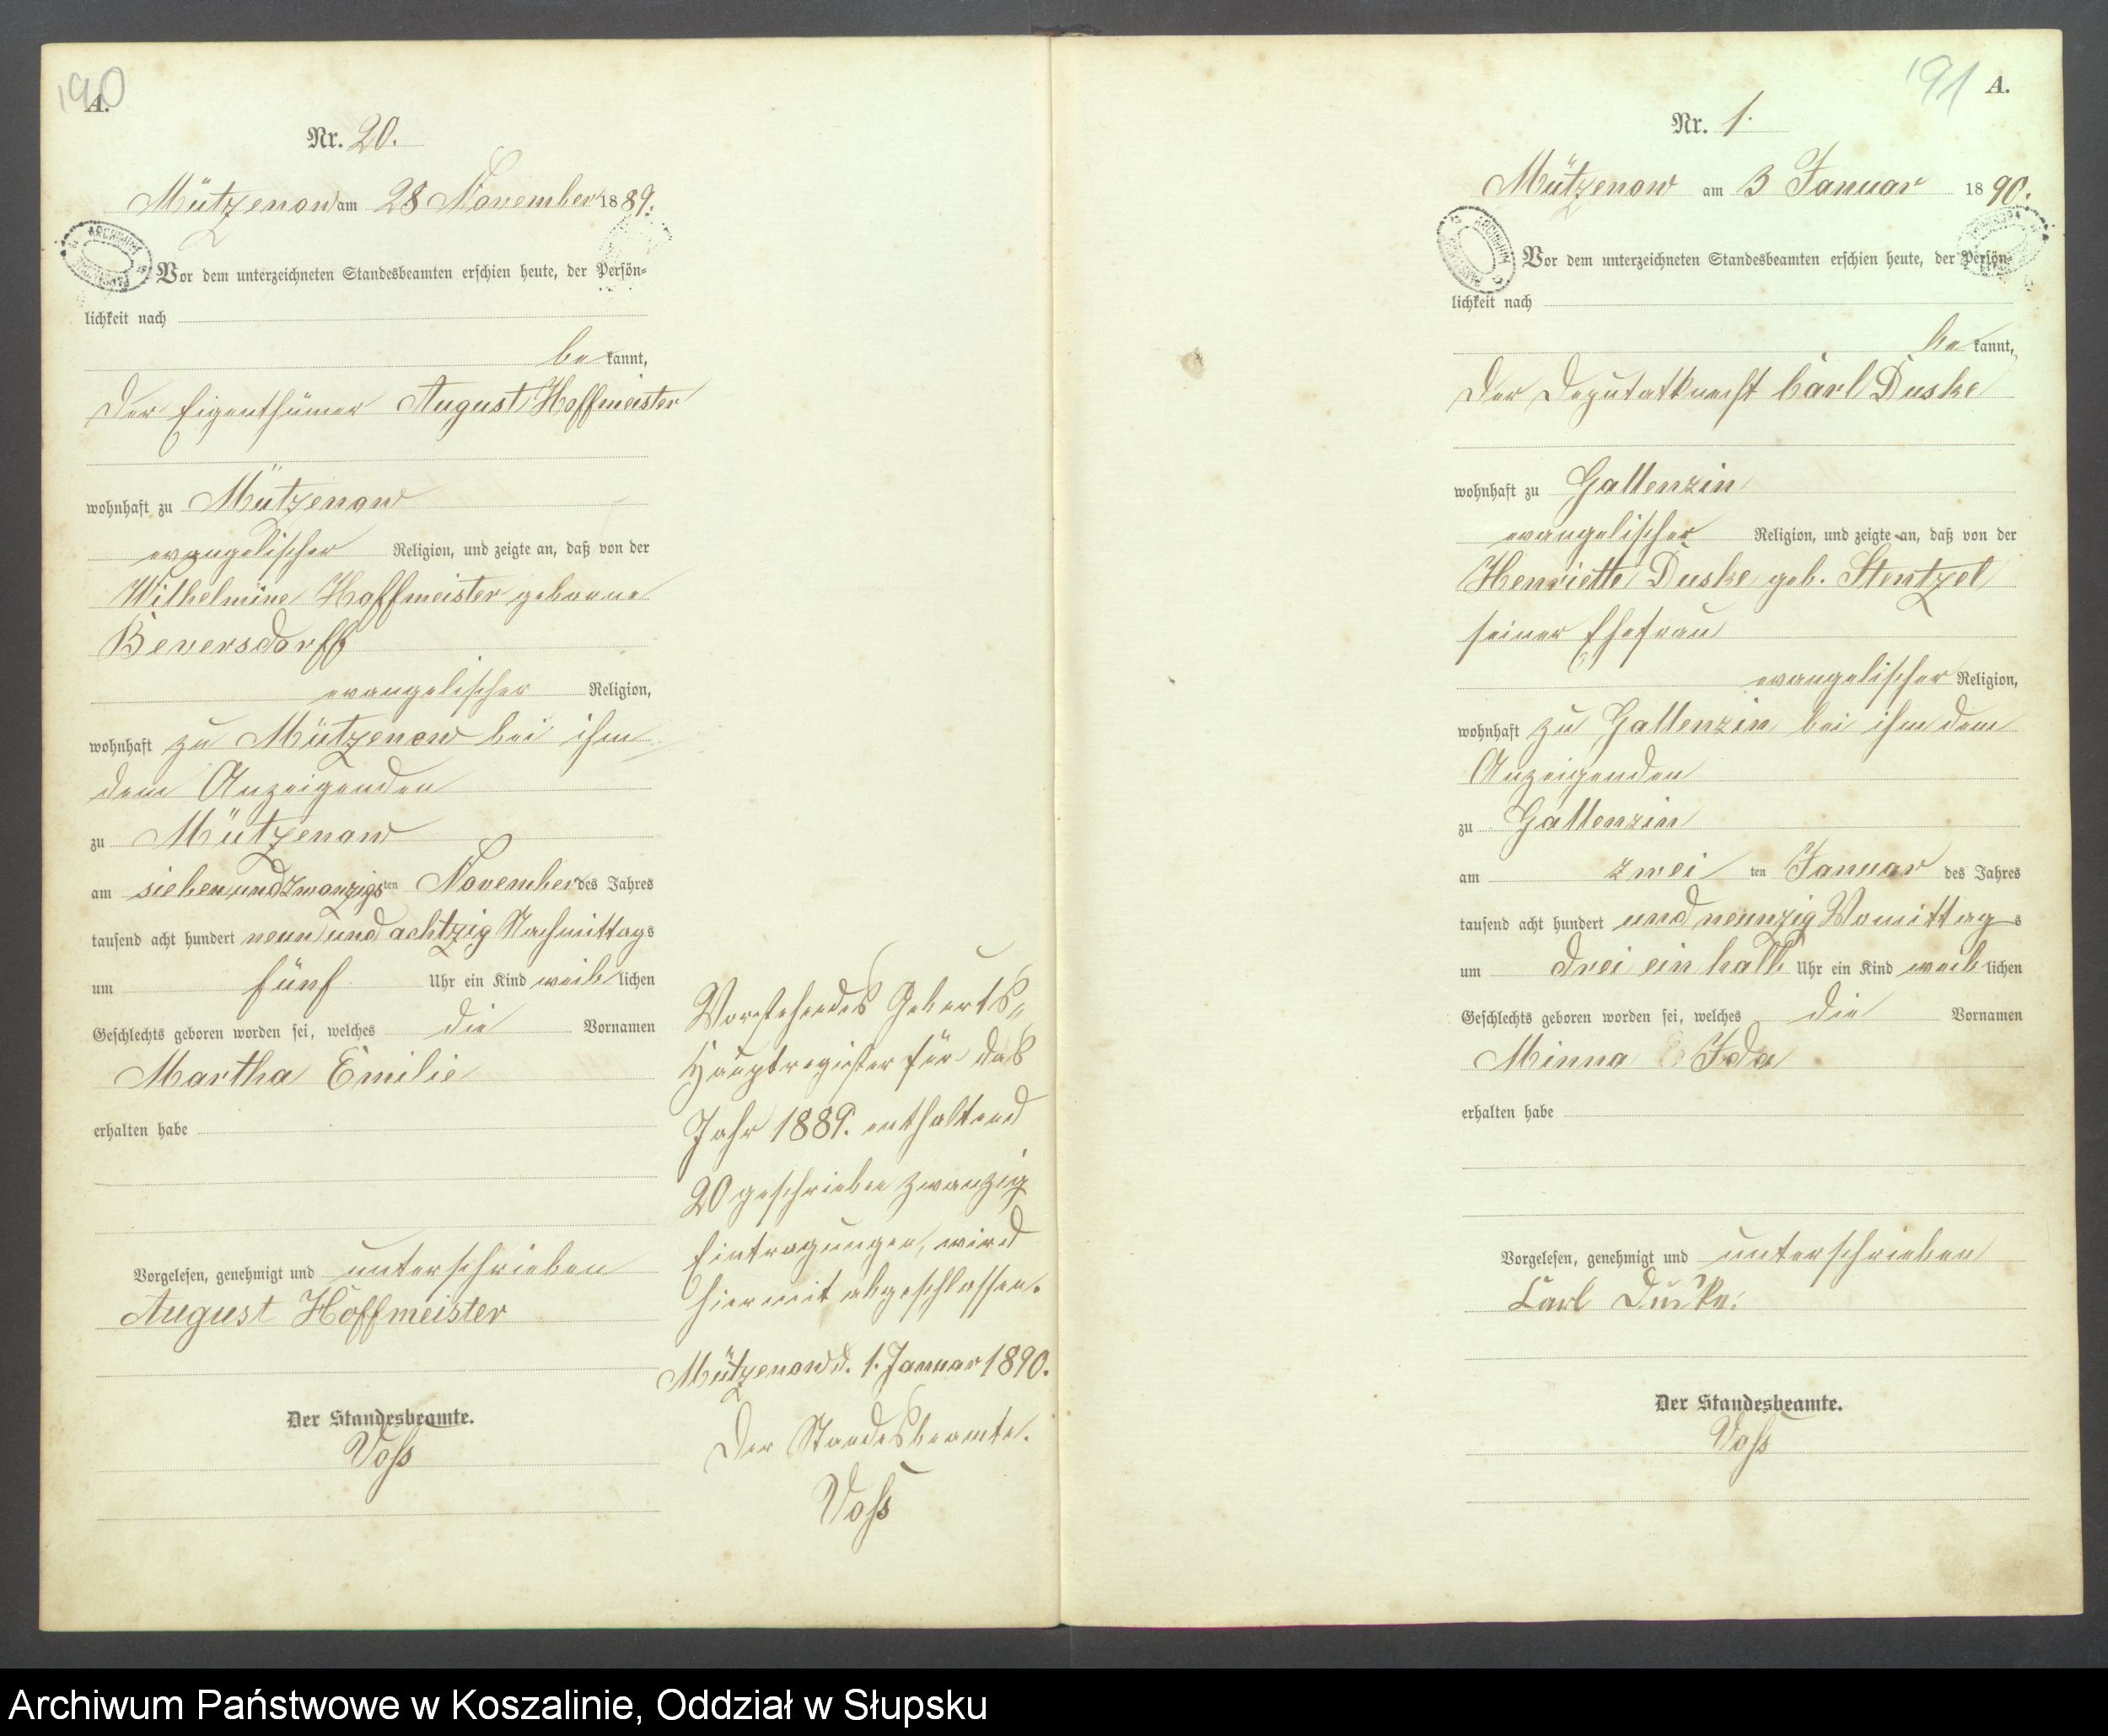 190
A.
Nr. 20.
Mützenow am 28 November 1889.
Vor dem unterzeichneten Standesbeamten erschien heute, der Persön-
lichkeit nach
be kannt,
der Eigenthümer August Hoffmeister
wohnhaft zu Mützenow
evangelischer Religion, und zeigte an, daß von der
Wilhelmine Hoffmeister geborene
Beversdorff
evangelischer Religion,
wohnhaft zu Mützenow bei ihm
dem Anzeigenden
zu Mützenow
am siebenundzwanzigsten November des Jahres
tausend acht hundert neun und achtzig Nachmittags
um fünf Uhr ein Kind weiblichen
Geschlechts geboren worden sei, welches die Vornamen
Martha Emilie
erhalten habe
Vorgelesen, genehmigt und unterschrieben
August Hoffmeister
Der Standesbeamte.
Voß
Vorstehendes Geburts„
Hauptregister für das
Jahr 1889. enthaltend
20 geschrieben zwanzig
Eintragungen, wird
hiermit abgeschlossen.
Mützenow d. 1. Januar 1890.
Der Standesbeamte.
Voß
191
A.
Nr. 1.
Mützenow am 3 Januar 1890.
Vor dem unterzeichneten Standesbeamten erschien heute, der Persön-
lichkeit nach
be kannt,
der Deputatknecht Carl Duske
wohnhaft zu Gallenzin
evangelischer Religion, und zeigte an, daß von der
Henriette Duske geb. Stentzel
seiner Ehefrau
evangelischer Religion,
wohnhaft zu Gallenzin bei ihm dem
Anzeigenden
zu Gallenzin
am zwei ten Januar des Jahres
tausend acht hundert und neunzig Vomittags
um drei ein halb Uhr ein Kind weiblichen
Geschlechts geboren worden sei, welches die Vornamen
Minna Ida
erhalten habe
Vorgelesen, genehmigt und unterschrieben
Carl Duske.
Der Standesbeamte.
Voß
Archiwum Państwowe w Koszalinie, Oddział w Słupsku